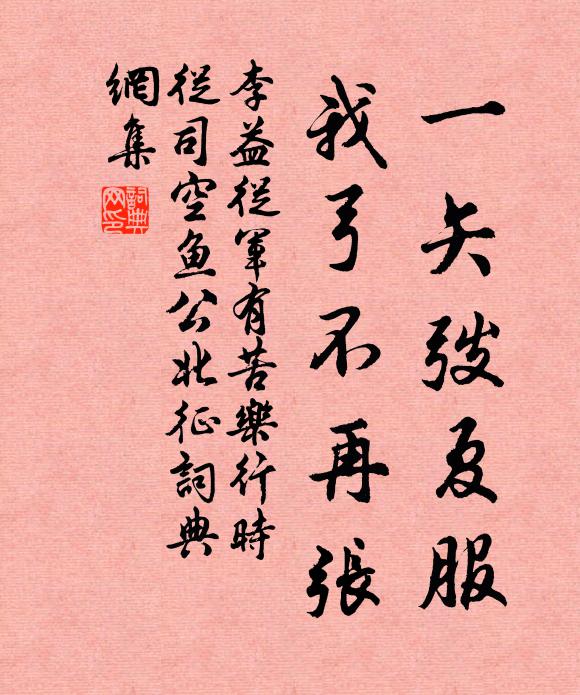 一矢弢夏服
我弓不再張
李益從軍有苦樂行時
從司空魚公北征詞典
網集
詞典
网印